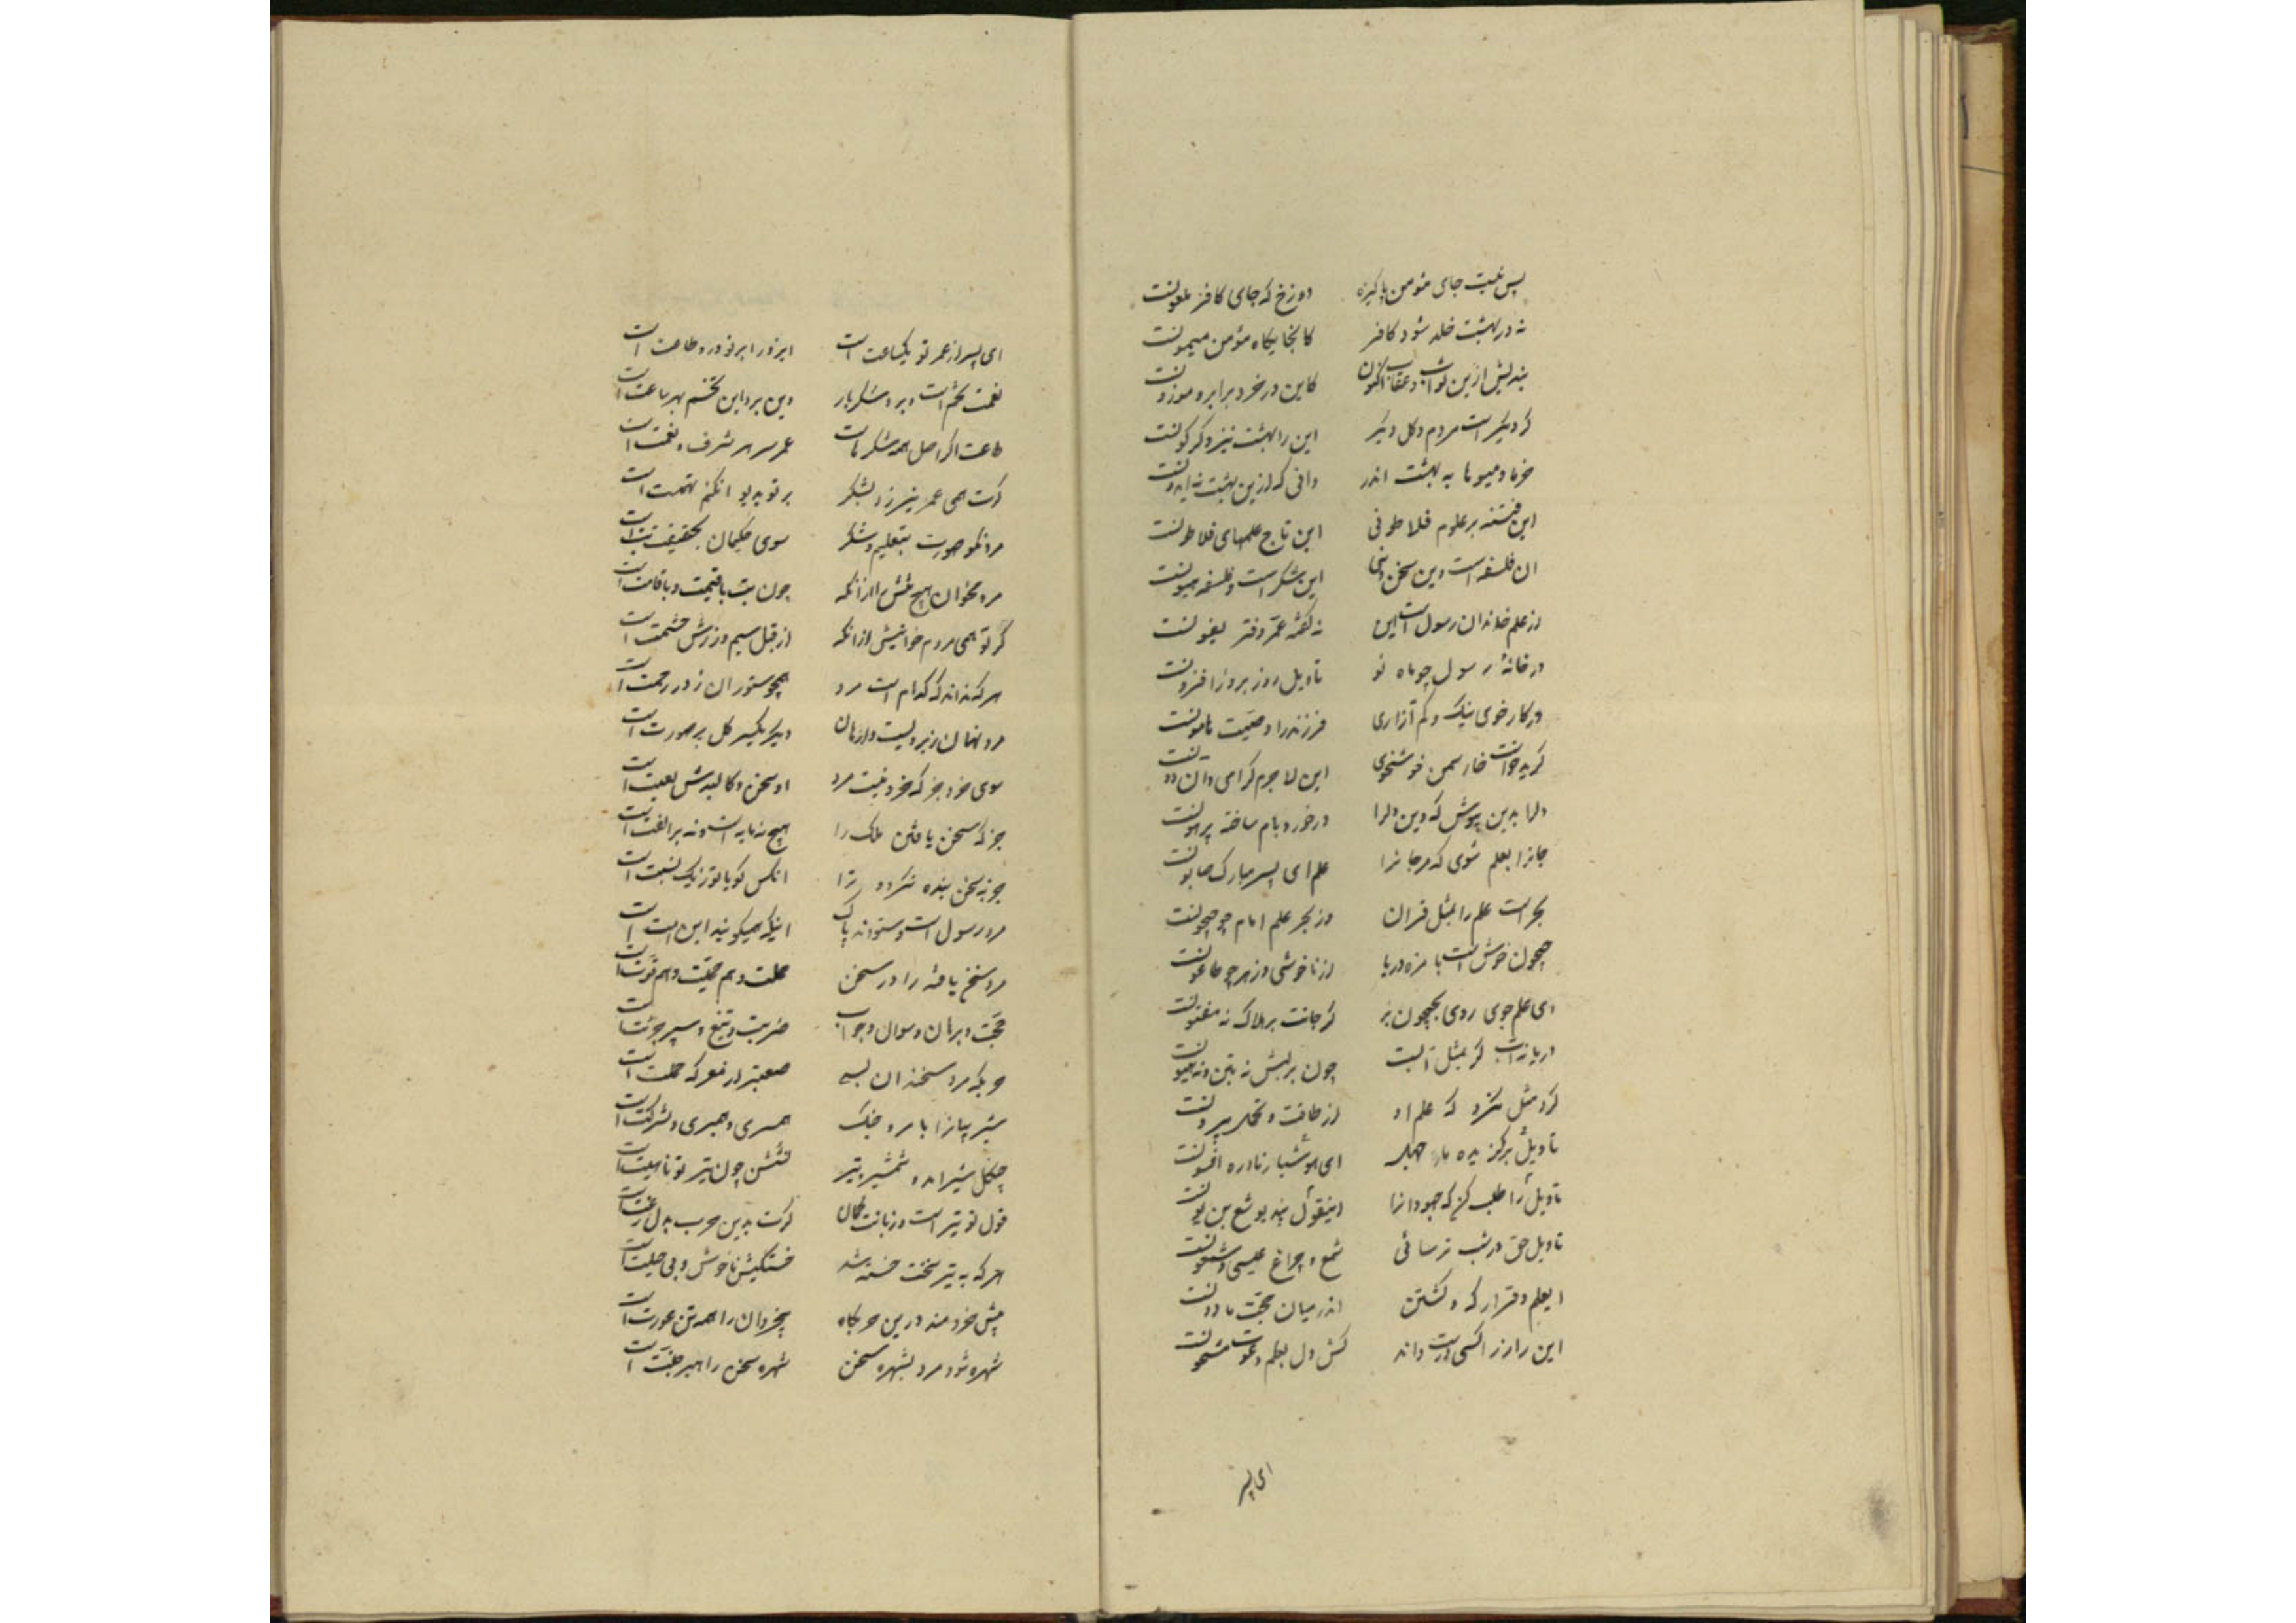 پس نیست جای مؤمن پاکیزه دوزخ که جای کافر ملعونست
نه در بهشت خلد شود کافر کانجایگاه مؤمن میمونست
بندیش ازین ثواب و عقاب اکنون کاین در خرد برابر و موزونست
گر دیگر است مردم و گل دیگر این را بهشت نیز دگرگونست
خرما و میوها به بهشت اندر دانی که ازین بهشت نه ایدونست
این فتنه بر علوم فلاطونی این تاج علمهای فلاطونست
ان فلسفه است و این سخن دینی این شکر است و فلسفه هپیونست
از علم خاندان رسول است این نه گفته عمرو دفتر
در خانه رسول چو ماه نو تاویل روز بروز افزونست
در کار خوی نیک و کم آزاری فرزند را وصیت مامونست
گر بدخوانست خار سمن خوشخوی این لاجرم گرامی وان دونست
دلرا بدین بپوش که دین دلرا در خورد بام ساخته پرهونست
جانرا بعلم شوی که مر جانرا علم ای پسر مبارک صابونست
بحر است علم را بمثل فرقان وز بحر علم امام چو جیحونست
جیحون خوش است با مزه دریا از ناخوشی و زهر چو طاعونست
ای علم جوی روی بجیحون بر گر جانت بر هلاک نه مفتونست
دریا نه آب گر بمثل آبست چون بر لبش نه تین و نه زیتونست
گرد مثل مگرد که علم او از طاقت و تحمل بیرونست
تاویل برگزیده مار جهل ای هوشیار نادره افسونست
تاویل را طلب کن که جهودانرا اینقول پند یوشع بن نونست
تاویل حق در شب ترسائی شمع و چراغ عیسی و شمعونست
اندر میان حجت مادونست
این راز را کسی درست داند کش دل بعلم دعوت مشحونست
ای پسر
ای پسر از عمر تو یکساعت است ایزد را بر تو درو طاعت است
نعمت تخم است و برو شکر بار وین برو این تخم بهر ساعت است
طاعت اگر اصل همه شکرهاست عمر سر هر شرف و نعمت است
گرت همی عمر نیرزد بشکر بر تو بدیو انکنم تهمت است
مرد نکو صورت بی علم و شکر سوی حکیمان بحقیقت بت است
مرد مخوان هیچ مَنَش ازانکه چون بت با قیمت و با قامت است
گر تو همی مردم خوانیش ازانکه از قبل سیم و زرش حشمت است
هر که نداند که کدام است مرد همچو ستوران ز در رحمت است
مرد نهان زیر دلست و زبان دیگر یکسر گل پر صورت است
سوی خرد جز که خرد نیست مرد او سخن و کالبدش لعبت است
جز که سخن یافتن ملک را هیچ نه مایه است و نه بر الفت است
چونکه سخن بنده نگردد ترا انکس کو با تو ز یک نسبت است
مرد رسول است و ستودنه پاک اینکه همیگویند این امت است
مرد سخن یافته را در سخن حملت و هم حجت و هم قوت است
حجت و برهان و سوال و جواب ضربت و تیغ و سپر و جوشن است
حربگه مرد سخندان بسی صعبتر از معرکه حملت است
شیر بیانرا با مرد جنگ همسری و همبری و شرکت است
چنگل شیران و شمشیر تیز
قول تو تیر است و زبانت کمان گرت بدین حرب بدل رغبت است
هر که به تیر سخنت خسته شد خستگیش ناخوش و بی حیلت است
پیش خردمند درین حربگاه بیخردان را همه تن عورت است
شهره شود مرد بشهره سخن شهره سخن راهبر جنت است